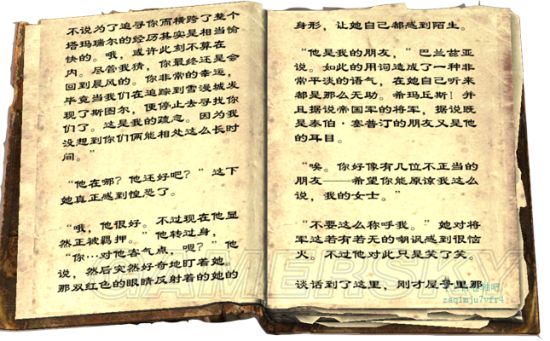 不说为了追寻你而横跨了整个
塔玛瑞尔的经历其实是相当愉
快的。哦，或许此刻不算在
内。尽管我猜，你最终还是会
回到晨风的。你非常的幸运，
毕竟当我们在追踪到雪漫城发
现了斯图尔，便停止去寻找你
们了。这是我的疏忽。因为我
没想到你们俩能相处这么长时
间。”
“他在哪？他还好吧？” 这下
她真正感到惶恐了。
“哦，他很好。不过现在他显
然正被羁押。” 他转过身，
“你…对他客气点，嗯？” 他
说，然后突然好奇地盯着她。
那双红色的眼睛反射着的她的
身形，让她自己都感到陌生。
“他是我的朋友，” 巴兰兹亚
说。如此的用词造成了一种非
常平淡的语气，在她自己听来
都是那么无助。希玛丘斯！并
且据说帝国军的将军，据说既
是泰伯·塞普汀的朋友又是他
的耳目。
“唉。你好像有几位不正当的
朋友——希望你能原谅我这么
说，我的女士。”
“不要这么称呼我。” 她对将
军这若有若无的朝讽感到很恼
火。不过他对此只是笑了笑。
谈话到了这里，刚才屋子里那
GAMERSKY
zaqimju7vfr4